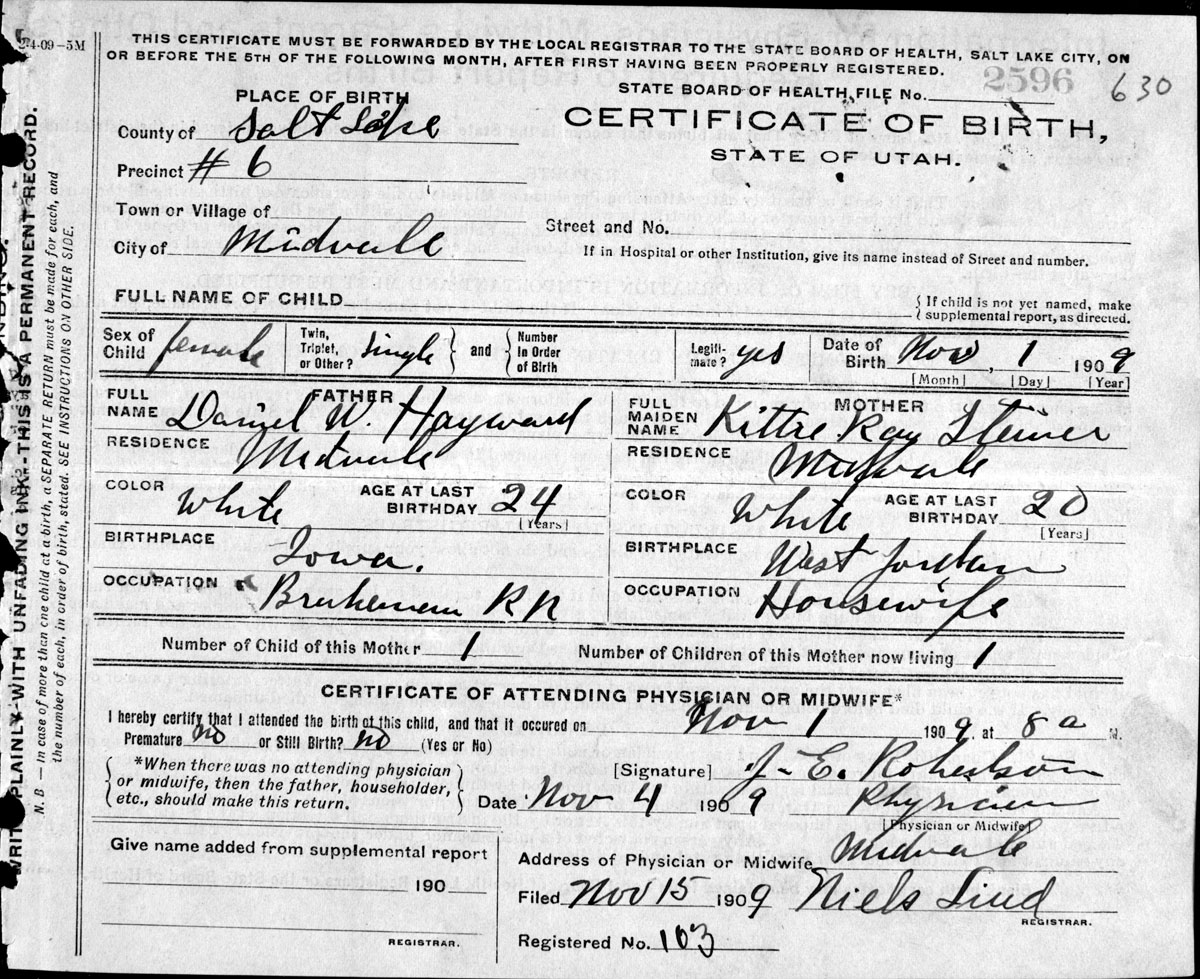 2-4-09-5M
THIS CERTIFICATE MUST BE FORWARDED BY THE LOCAL REGISTRAR TO THE STATE BOARD OF HEALTH, SALT LAKE CITY, ON
OR BEFORE THE 5TH OF THE FOLLOWING MONTH, AFTER FIRST HAVING BEEN PROPERLY REGISTERED.
2596
630
STATE BOARD OF HEALTH, FILE No.
PLACE OF BIRTH
CERTIFICATE OF BIRTH,
STATE OF UTAH.
County of Salt Lake
Precinct # 6
Town or Village of
Street and No.
City of Midvale
If in Hospital or other Institution, give its name instead of Street and number.
FULL NAME OF CHILD
{ If child is not yet named, make
supplemental report, as directed.
Sex of Child female
Twin, Triplet, or Other? single } and { Number In Order of Birth
Legiti-mate? yes
Date of Birth Nov, 1 1909
[Month] [Day] [Year]
FATHER
FULL NAME Daniel W. Hayward
RESIDENCE Midvale
COLOR White AGE AT LAST BIRTHDAY 24
[Years]
BIRTHPLACE Iowa.
OCCUPATION RR
MOTHER
FULL MAIDEN NAME Kittie Ray
RESIDENCE Midvale
COLOR White AGE AT LAST BIRTHDAY 20
[Years]
BIRTHPLACE West Jordan
OCCUPATION Housewife
Number of Child of this Mother 1
Number of Children of this Mother now living 1
CERTIFICATE OF ATTENDING PHYSICIAN OR MIDWIFE*
I hereby certify that I attended the birth of this child, and that it occured on Nov 1 1909, at 8 a M.
Premature no or Still Birth? no (Yes or No)
{ *When there was no attending physician
or midwife, then the father, householder,
etc., should make this return. }
[Signature] J. E. Robertson
Date Nov 4 1909 Physician
[Physician or Midwife]
Give name added from supplemental report
190
REGISTRAR.
Address of Physician or Midwife Midvale
Filed Nov 15 1909 Niels Lind
REGISTRAR.
Registered No. 103
WRITE PLAINLY WITH UNFADING INK--THIS IS A PERMANENT RECORD.
N. B — In case of more than one child at a birth, a SEPARATE RETURN must be made for each, and
the number of each, in order of birth, stated. SEE INSTRUCTIONS ON OTHER SIDE.